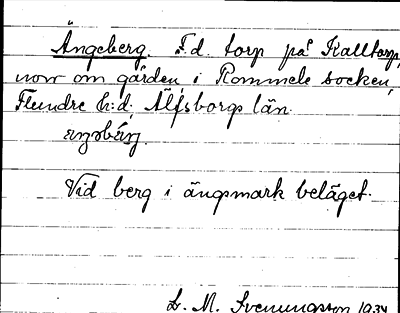 Ängeberg. F.d. torp på Kalltorp,
norr om gården, i Rommele socken,
Flundre h:d, Älfsborgs län.
Vid berg i ängsmark beläget.
L. M. Svenungsson 1934